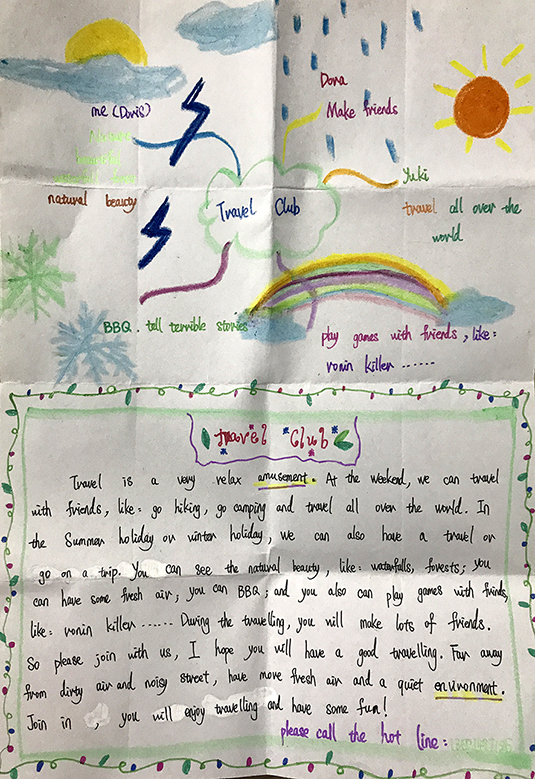 Dora
me (Doris)
Make friends
natural beauty
Yuki
travel all over the
world
Travel Club
BBQ. tell terrible stories
play games with friends, like:
ronin killer ......
Travel Club
Travel is a very relax amusement. At the weekend, we can travel
with friends, like: go hiking, go camping and travel all over the world. In
the Summer holiday or winter holiday, we can also have a travel or
go on a trip. You can see the natural beauty, like: waterfalls, forests; you
can have some fresh air; you can BBQ; and you also can play games with friends,
like: ronin killer ...... During the travelling, you will make lots of friends.
So please join with us, I hope you will have a good travelling. Far away
from dirty air and noisy street, have more fresh air and a quiet environment.
Join in , you will enjoy travelling and have some fun!
please call the hot line: